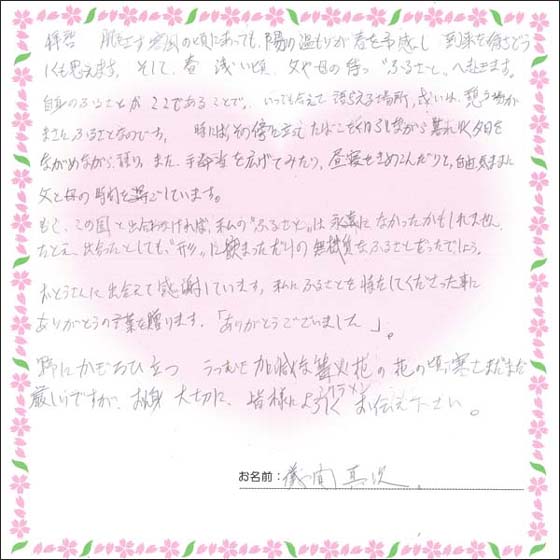 拝啓 肌をさす寒風の頃にあっても、陽の温もりが春を予感し 到来を待ちどう
しくも思えます。そして、春浅い頃、父や母の待つ"ふるさと"へ赴きます。
自身のふるさとがここであることで、いつでも会えて語らえる場所、或いは、想う場が
まさにふるさとなのです。時にはその傍を立てたばこをくゆらしながら暮れゆく夕日を
ながめながら語り、また、手弁当を広げてみたり、昼寝をきめこんだりと、自由気ままに
父と母の時間を過ごしています。
もし、この園と出会わなければ、私の"ふるさと"は永遠になかったかもしれません。
たとえ、出会ったとしても、"形"に嵌まっただけの無機質なふるさとだったでしょう。
おとうさんに出会えて感謝しています。私にふるさとを持たせてくださった事に
ありがとうの言葉を贈ります。「ありがとうございました」。
野にかぎろひ立つ うつむき加減な篝火花の花の頃、寒さまだまだ
厳しいですが、お身大切に、皆様によろしくお伝え下さい。
お名前：儀間真次